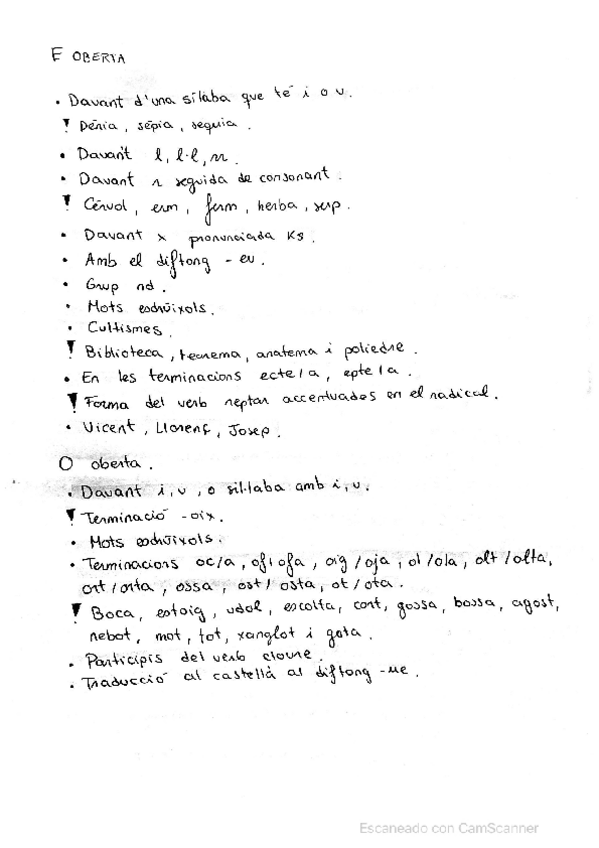 E OBERTA
• Davant d'una síl·laba que té i o u.
! Dénia, sépia, séquia.
• Davant l, l·l, rr.
• Davant r seguida de consonant.
! Cérvol, erm, ferm, herba, serp.
• Davant x pronunciada Ks.
• Amb el diftong -eu.
• Grup nd.
• Mots esdrúixols.
• Cultismes.
! Biblioteca, teorema, anatema i poliedre.
• En les terminacions ecte/a, epte/a.
! Forma del verb reptar accentuades en el radical.
• Vicent, Llorenç, Josep.
O oberta.
• Davant i, u, o síl·laba amb i, u.
! Terminació -oix.
• Mots esdrúixols.
• Terminacions oc/a, of/ofa, oig/oja, ol/ola, olt/olta,
ort/orta, ossa, ost/osta, ot/ota.
! Boca, estoig, udol, escolta, cort, gossa, bossa, agost,
nebot, mot, tot, xanglot i gota.
• Participis del verb cloure.
• Traducció al castellà al diftong -ue.
Escaneado con CamScanner